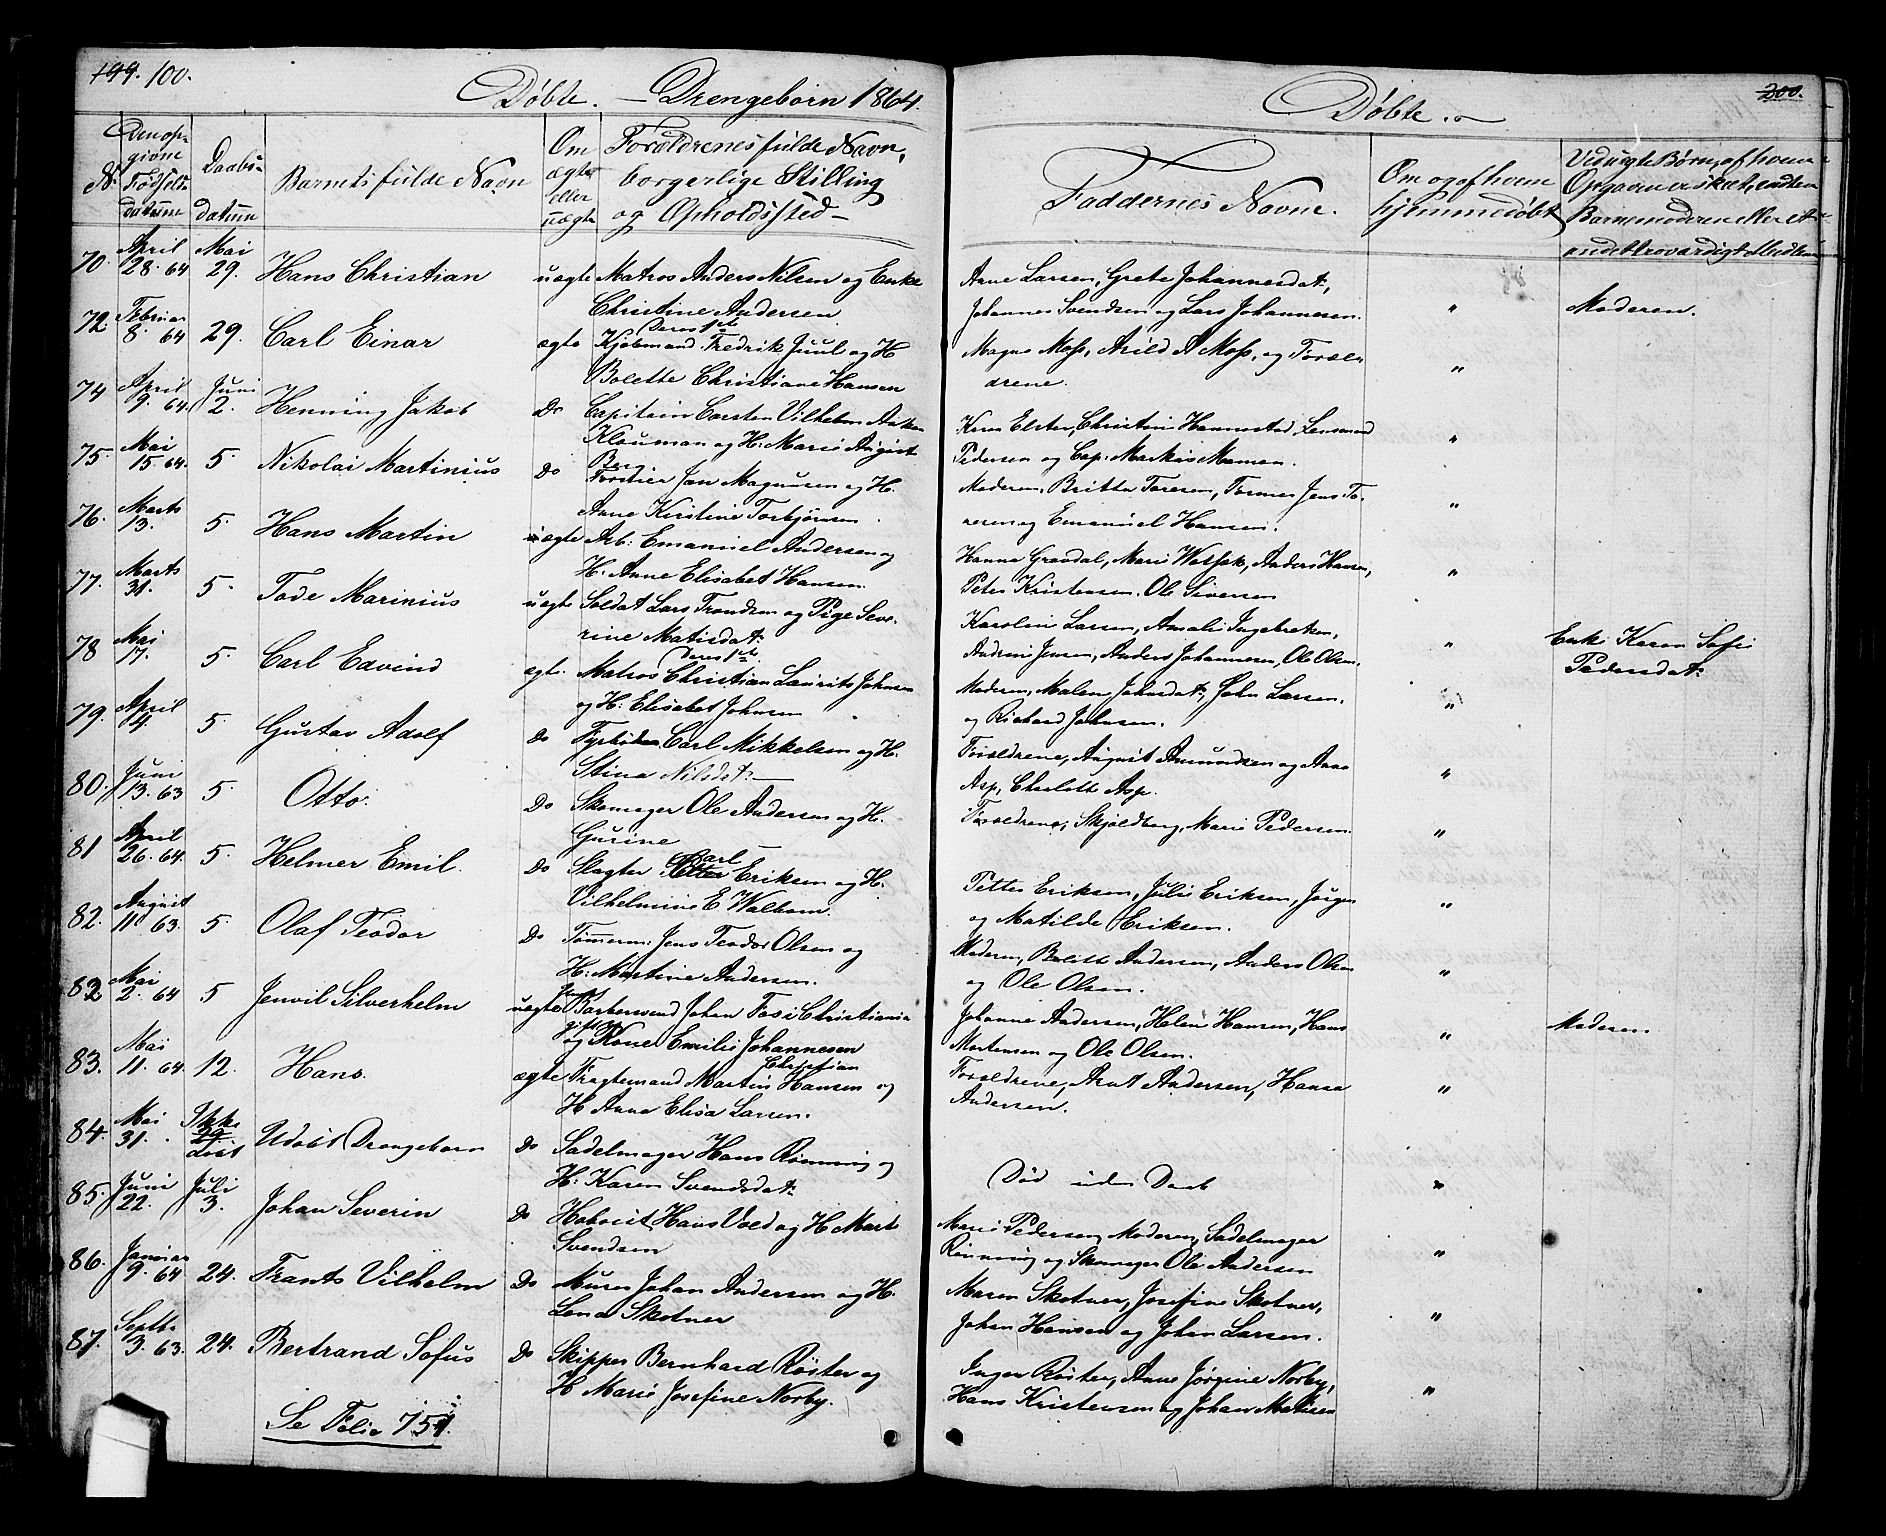 199. 100.
Døbte. — Drengebørn 1864.
No
Den op-
givne
Fødsels-
datum
Daabs-
datum
Barnets fulde Navn
Om
ægte
eller
uægte
Forældrenes fulde Navn,
borgerlige Stilling
og Opholdssted
70. April 28. 64 Mai 29. Hans Christian uægte Matros Anders Nilsen og Enke
Christine Andersen
Deres 1ste
72 Februar 8. 64 29. Carl Einar ægte Kjøbmand Fredrik Juul og H
Bolette Christiane Hansen
74 April 9. 64. Juni 2. Henning Jakob Do Capitain Carsten Vilhelm
Klouman og H: Marie August
Berg
75. Mai 15. 64. 5. Nikolai Martinius Do Jan Magnusen og H.
Anne Kirstine Torbjørnsen
76. Marts 13. 5. Hans Martin ægte Arb: Emanuel Andersen og
H: Anne Elisabet Hansen.
77. Marts 31. 5. Tode Marinius uægte Soldat Lars Trondsen og Pige Seve-
rine Matisdat:
Deres 1ste
78 Mai 17. 5. Carl Edvind ægte. Matros Christian Laurits Johnsen
og H: Elisabet Johnsen
79. April 4. 5 Gustav Adolf Do Carl Mikkelsen og H.
Stina Nilsdat:
80. Juni 13. 63 5. Otto. Do Skomager Ole Andersen og H.
Gurine
81 April 26. 64. 5. Helmer Emil. Do Slagter Petter Carl Eriksen og H:
Vilhelmine E Walbom.
82. August 11. 63. 5. Olaf Teodor Do Tømmerm: Jens Teodor Olsen og
H: Martine Andersen.
82 Mai 2. 64 5 Jenvil Silverhelm uægte Barbersvend Johan Foss i Christiania
gift
og Kone Emilie Johannesen
Christian
83. Mai 11. 64. 12. Hans. ægte Fragtemand Martin Hansen og
H Anna Elisa Larsen.
84. Mai 31. Ikke døbt Udøbt Drengebarn Do Sadelmager Hans Rønning og
H: Karen Svendsdat:
85. Juni 22. Juli 3. Johan Severin Do Hans Vold og H Mart
Svendsen
86. Januar 9. 64 24. Frants Vilhelm Do Murer Johan Andersen og H.
Lena Skotner
87. Septb: 3. 63. 24. Bertrand Sofus Do Skipper Bernhard Røster og
H Marie Josefine Norby.
Se Folio 751.
200.
Døbte.
Faddernes Navne.
Om og af hvem
hjemmedøbt
Ved uægte Børn, af hvem
Opgaven er skeet, enten
Barnemoderen eller et
andet troværdigt Medlem
Anne Larsen, Grete Johannesdat,
Johannes Svendsen og Lars Johannesen. " Moderen.
Magnus Moss, Arild A Moss, og Foræl-
drene. "
Elster, Christine Hannestad,
Pedersen og Cap: Markus Mamen. "
Moderen, Britta Toresen, Jens To-
resen og Emanuel Hansen. "
Hanna Grandal, Marie, Anders Hansen,
Peter Kristensen. Ole Siversen "
Karoline Larsen, Amalie Ingebretsen,
Andrine Jensen, Anders Johannesen, Ole Olsen. " Enke Karen Sofie
Pedersdat:
Moderen, Malene Johnsdat:, John Larsen.
og Richard Johnsen. "
Forældrene, August Amundsen og Anna
Asp, Charlotte Asp. "
Forældrene, Skjoldborg, Marie Pedersen. "
Petter Eriksen, Julie Eriksen, Jørgen
og Matilde Eriksen. "
Moderen, Bolette Andersen, Anders Olsen
og Ole Olsen. "
Johanne Andersen, Helene Hansen, Hans
Mortensen og Ole Olsen. " Moderen
Forældrene, Arnt Andersen, Hansa
Andersen. "
Død uden Daab "
Marie Pedersen, Moderen, Sadelmager
Rønning og Skomager Ole Andersen "
Maren Skotner, Josefine Skotner,
Johan Hansen og Johan Larsen. "
Inger Røster, Anne Jørgine Norby,
Hans Kristensen og Johan Matisen "